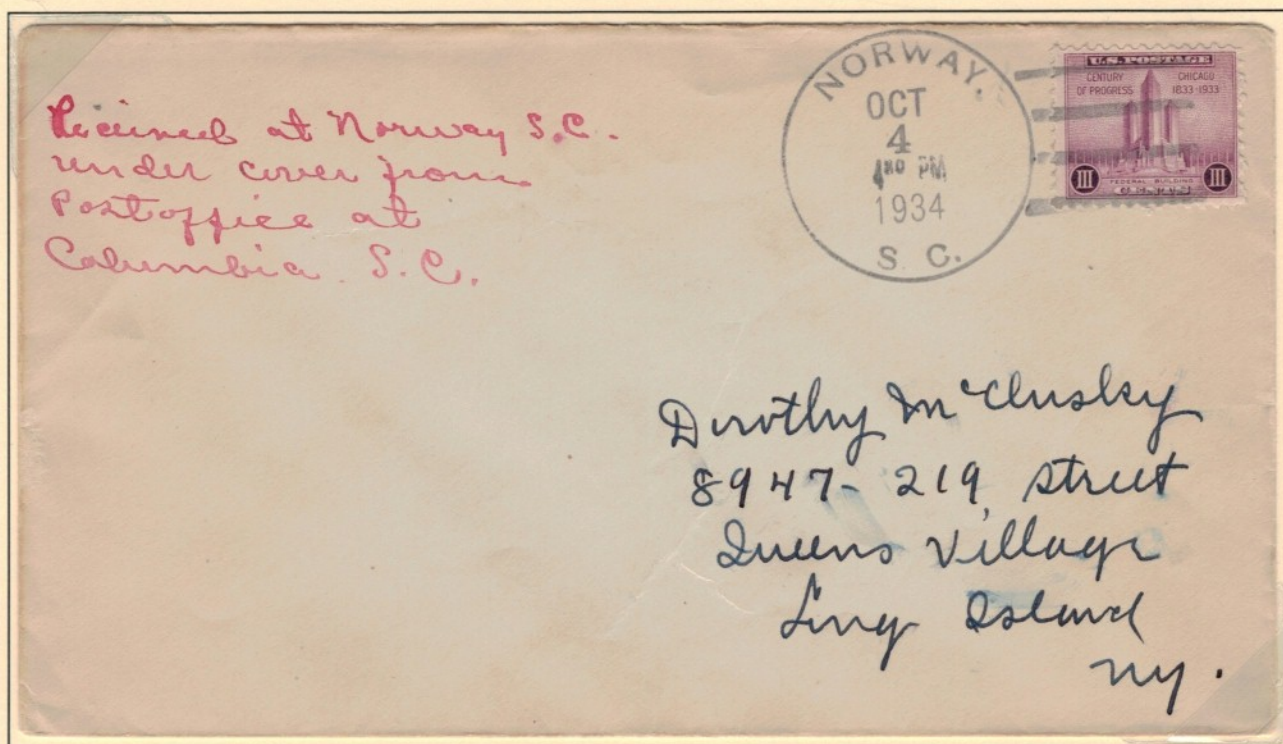 Received at Norway S.C.
under cover from
Postoffice at
Columbia S.C.
NORWAY.
OCT
4
4 30 PM
1934
S. C.
U.S. POSTAGE
CENTURY OF PROGRESS
CHICAGO 1833-1933
FEDERAL BUILDING
III CENTS III
Dorothy McClusky
8947- 219 street
Queens Village
Long Island
ny.